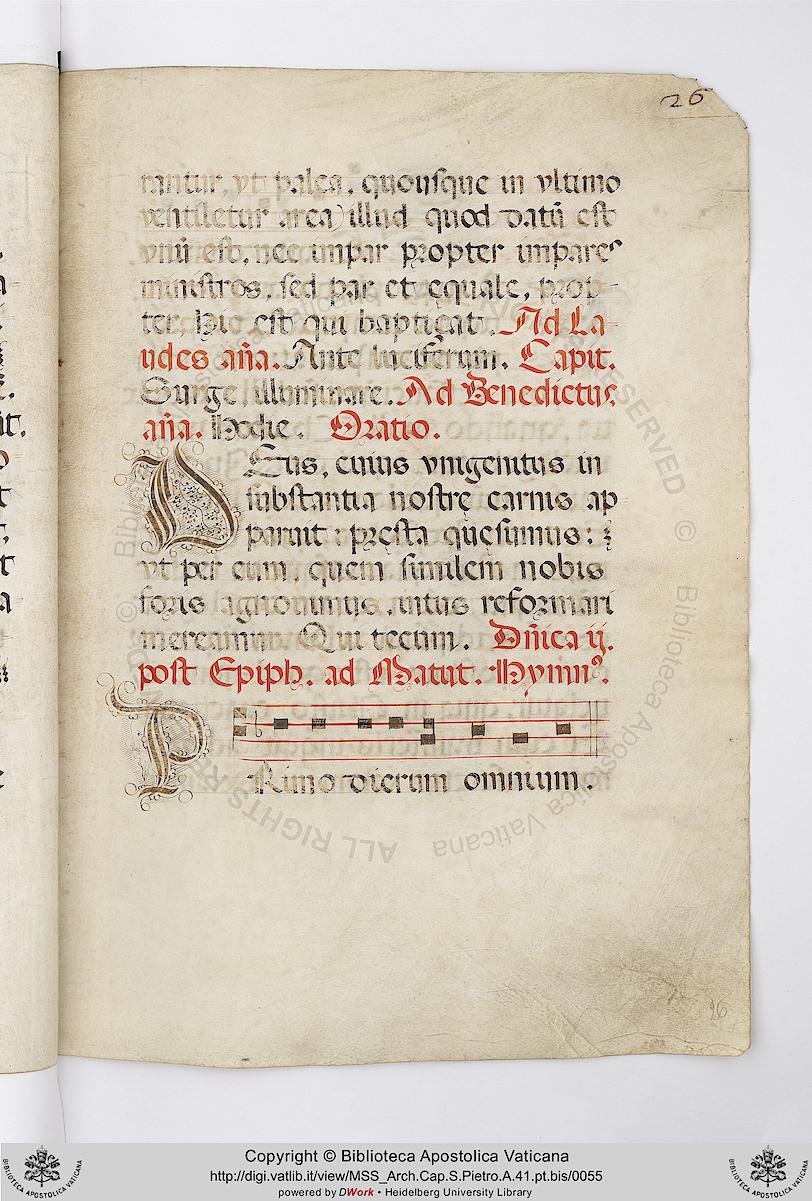 26
rantur, vt palea, quousque in vltimo
ventiletur area) illud quod datū est
vnū est, nec impar propter impares
ministros, sed par et ęquale, prop-
ter. Hic est qui baptiçat. Ad La-
udes aña. Ante luciferum. Capit.
Surge, illuminare. Ad Benedictus
aña. Hodie. Oratio.
DEus, cuius vnigenitus in
substantia nostrę carnis ap
paruit: pręsta quęsumus:
vt per eum, quem similem nobis
foris agnouimus, intus reformari
mereamur. Qui tecum. Dñica ij.
post Epiph. ad Matut. Hymnꝰ.
PRimo dierum omnium.
26
ALL RIGHTS RESERVED © Biblioteca Apostolica Vaticana
Copyright © Biblioteca Apostolica Vaticana
http://digi.vatlib.it/view/MSS_Arch.Cap.S.Pietro.A.41.pt.bis/0055
powered by DWork • Heidelberg University Library
BIBLIOTECA APOSTOLICA VATICANA
BIBLIOTECA APOSTOLICA VATICANA